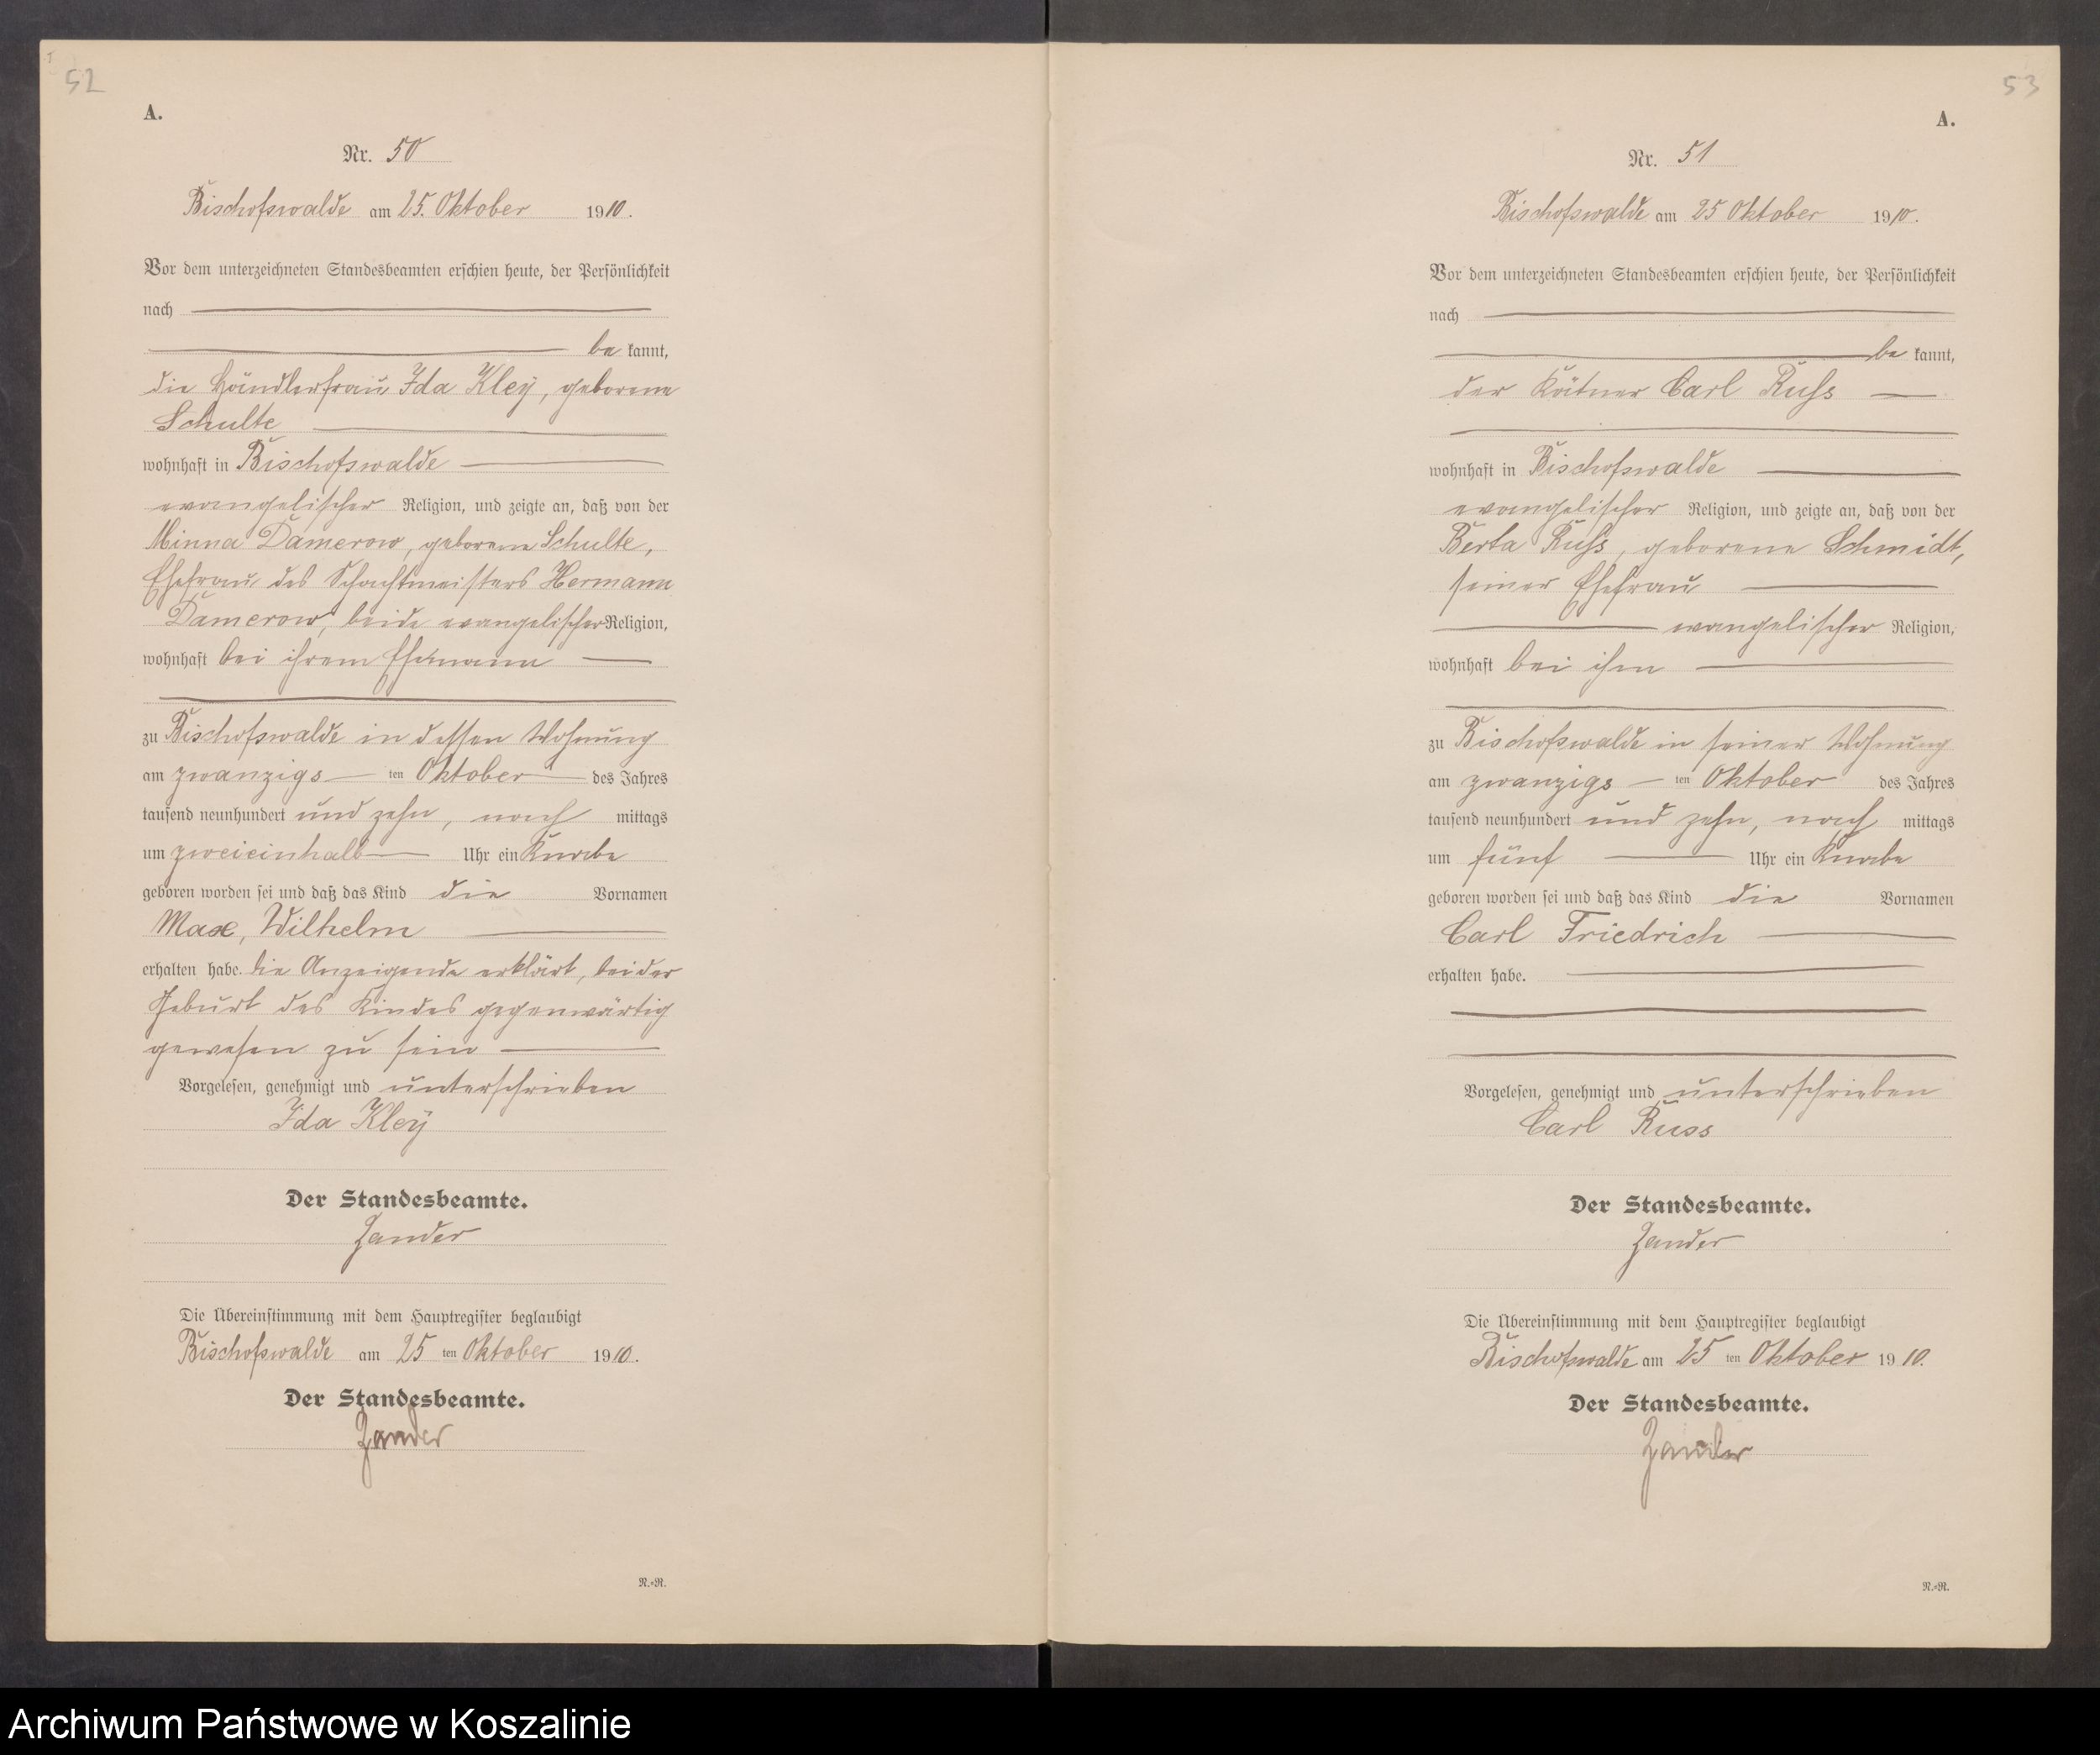 52
A.
Nr. 50
Bischofswalde am 25. Oktober 1910.
Vor dem unterzeichneten Standesbeamten erschien heute, der Persönlichkeit
nach
be kannt,
die Händlerfrau Ida Kley, geborene
Schulte
wohnhaft in Bischofswalde
evangelischer Religion, und zeigte an, daß von der
Minna Damerow, geborene Schulte,
Ehefrau des Schachtmeisters Hermann
Damerow, beide evangelischer Religion,
wohnhaft bei ihrem Ehemann
zu Bischofswalde in dessen Wohnung
am zwanzigs ten Oktober des Jahres
tausend neunhundert und zehn, nach mittags
um zweieinhalb Uhr ein Knabe
geboren worden sei und daß das Kind die Vornamen
Max, Wilhelm
erhalten habe. Die Anzeigende erklärt, bei der
Geburt des Kindes gegenwärtig
gewesen zu sein
Vorgelesen, genehmigt und unterschrieben
Ida Kley
Der Standesbeamte.
Zander
Die Übereinstimmung mit dem Hauptregister beglaubigt
Bischofswalde am 25 ten Oktober 1910.
Der Standesbeamte.
Zander
R.=R.
53
A.
Nr. 51
Bischofswalde am 25 Oktober 1910.
Vor dem unterzeichneten Standesbeamten erschien heute, der Persönlichkeit
nach
be kannt,
der Kätner Carl Russ
wohnhaft in Bischofswalde
evangelischer Religion, und zeigte an, daß von der
Berta Russ, geborene Schmidt,
seiner Ehefrau
evangelischer Religion,
wohnhaft bei ihm
zu Bischofswalde in seiner Wohnung
am zwanzigs ten Oktober des Jahres
tausend neunhundert und zehn, nach mittags
um fünf Uhr ein Knabe
geboren worden sei und daß das Kind die Vornamen
Carl Friedrich
erhalten habe.
Vorgelesen, genehmigt und unterschrieben
Carl Russ
Der Standesbeamte.
Zander
Die Übereinstimmung mit dem Hauptregister beglaubigt
Bischofswalde am 25 ten Oktober 1910.
Der Standesbeamte.
Zander
R.=R.
Archiwum Państwowe w Koszalinie